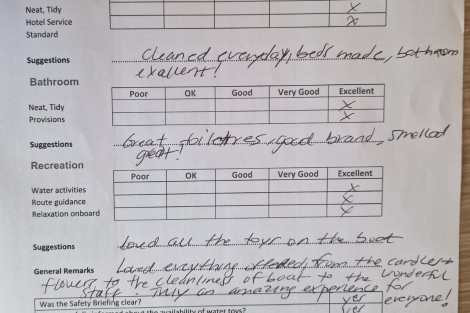 Neat, Tidy
Hotel Service
Standard
Suggestions Cleaned everyday, beds made, bathroom
exallent!
Bathroom
Poor OK Good Very Good Excellent
Neat, Tidy
Provisions
Suggestions Great toiletres, good brand, smelled
great!
Recreation
Poor OK Good Very Good Excellent
Water activities
Route guidance
Relaxation onboard
Suggestions loved all the toys on the boat
General Remarks Loved everything offered, from the candles +
flowers to the cleanliness of boat to the wonderful
staff. Truly an amazing experience for
everyone!
Was the Safety Briefing clear? yes
about the availability of water toys? yes